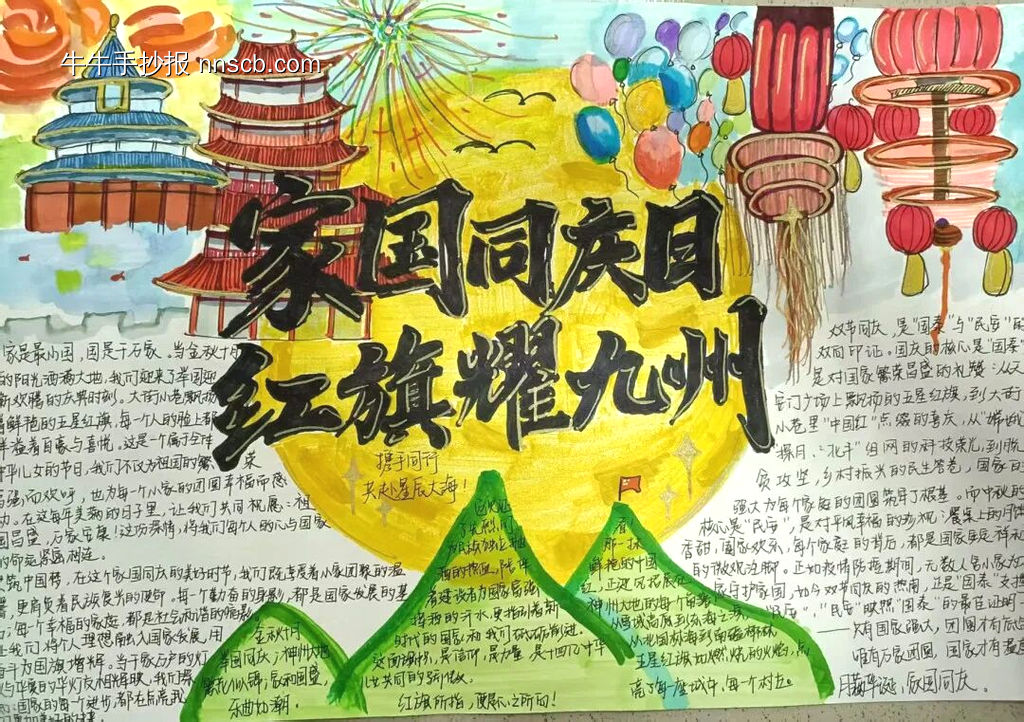 牛牛手抄报 nnscb.com
家国同庆日
红旗耀九州
携手同行
共赴星辰大海!
家是最小国,国是千万家。当金秋十月
的阳光洒满大地,我们迎来了举国迎
新欢腾的庆典时刻。大街小巷飘扬
着鲜艳的五星红旗,每一个人的脸上都
洋溢着自豪与喜悦。这是一个属于全体
中华儿女的节日,我们不仅为祖国的繁荣
昌强而欢呼,也为每一个小家的团圆幸福而感
动。在这每年美菊的日子里,让我们共同祝愿:祖
国昌盛,万家安康!这份深情,将我们每个人的心与国家
的命运紧密相连。
筑中国情,在这个家国同庆的美好时节,我们既享受着小家团聚的温
馨,更肩负着民族复兴的使命。每一个勤奋的身影,都是国家发展的基
每个幸福的家庭,都是社会和谐的缩影。
让我们将个人理想融入国家发展,用
奋斗为国旗增辉。当千家万户的灯
火与华夏的华灯交相辉映,我们深
国家的每一个进步,都在点亮我
双节同庆,是“国泰”与“民安”的
双向印证。国庆的核心是“国泰”
是对国家繁荣昌盛的礼赞:从天
安门广场上飘扬的五星红旗,到大街
小巷里“中国红”点缀的喜庆,从“嫦娥
探月、“北斗”组网的科技荣光,到脱
贫攻坚,乡村振兴的民生答卷,国家日
强大为每个家庭的团圆筑牢了根基。而中秋的
核心是“民安”,是对平凡幸福的珍视:餐桌上的月饼
香甜,阖家欢乐,每个家庭的背后,都是国家安定祥和
的微观注脚。正如疫情防控期间,无数人舍小家为
家守护家园,如今双节同庆的热闹,正是“国泰”支撑
“民安”,“民安”映照“国泰”的最佳证明
——只有国家强大,团圆才有底
唯有万家团圆,国家才有温度
月满华诞,家国同庆。
金秋十月
举国同庆,神州大地
繁花似锦,家和国盛,
乐曲如潮。
时代的国家和我们砥砺前进。
这面旗帜,是信仰,是力量,是十四亿中华
儿女共同的骄傲。
红旗所指,便是心之所向!
看!
那一抹
鲜艳的中国
红,正迎风招展在
神州大地的每个角落。
五星红旗如燃烧的火焰,点
亮了每一座城市,每一个村庄。